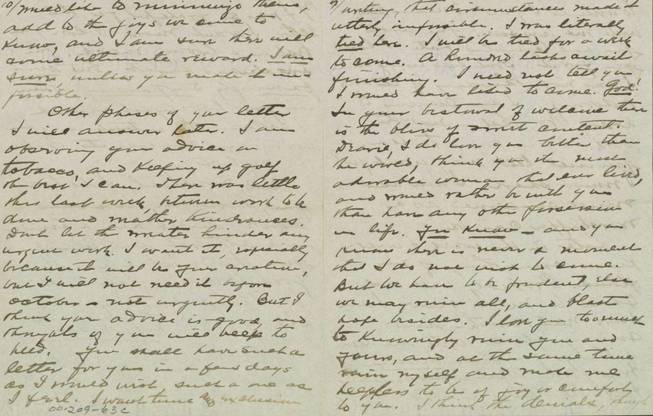 would like to minimize them,
add to the joys we came to
know, and I am sure there will
come ultimate reward. I am
sure, unless you make it
possible.
Other phases of your letter
I will answer later. I am
observing your advice on
tobacco, and keeping up golf
the best I can. There was little
this last week, between work to be
done and weather hindrances.
Don't let the matter hinder any
urgent work. I want it, especially
because it will be your creation,
but I will not need it before
October - not urgently. But I
think your advice is good, and
thoughts of you will help to
heed. You shall have such a
letter for you in a few days
as I would wish, such a one as
I feel. I want time
00-209-63c
writing, that circumstances made it
utterly impossible. I was literally
tied here. I will be tied for a week
to come. A hundred tasks await
finishing. I need not tell you
I would have liked to come. God!
In your bestowal of welcome there
is the bliss of content.
Dearie, I do love you better than
the world, think you the most
adorable woman that ever lived,
and would rather be with you
than have any other possession
in life. You know - and you
know there is never a moment
that I do not wish to come.
But we have to be prudent, else
we may ruin all, and blast
hope besides. I love you too much
to knowingly ruin you and
yours, and at the same time
ruin myself and make me
helpless to be of joy or comfort
to you. I think the denials, though